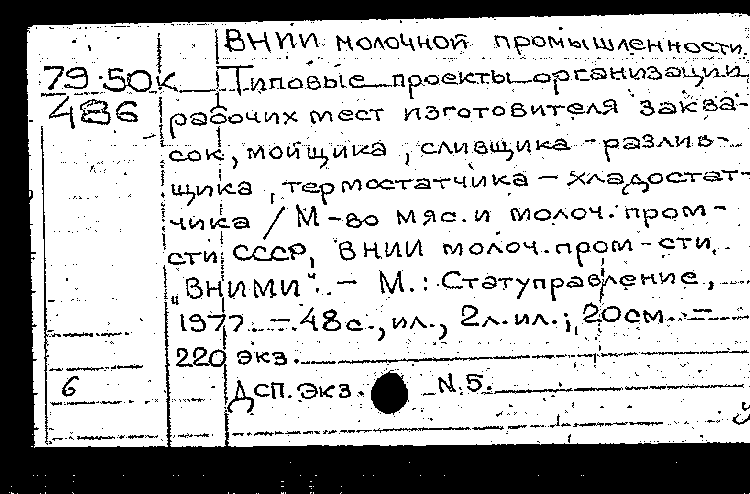 ВНИИ молочной промышленности.
79-50к Типовые проекты организации
486 рабочих мест изготовителя заква-
сок, мойщика, сливщика-разлив-
щика, термостатчика - хладостат-
чика / М-во мяс. и молоч. пром-
сти СССР, ВНИИ молоч. пром-сти
„ВНИМИ“. - М.: Статуправление,
1977. - 48с., ил., 2л. ил.; 20см. -
220 экз.
6 Дсп. Экз. N.5.